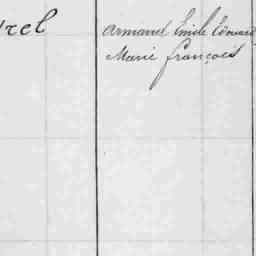 Armand Emile Edouard
Marie François